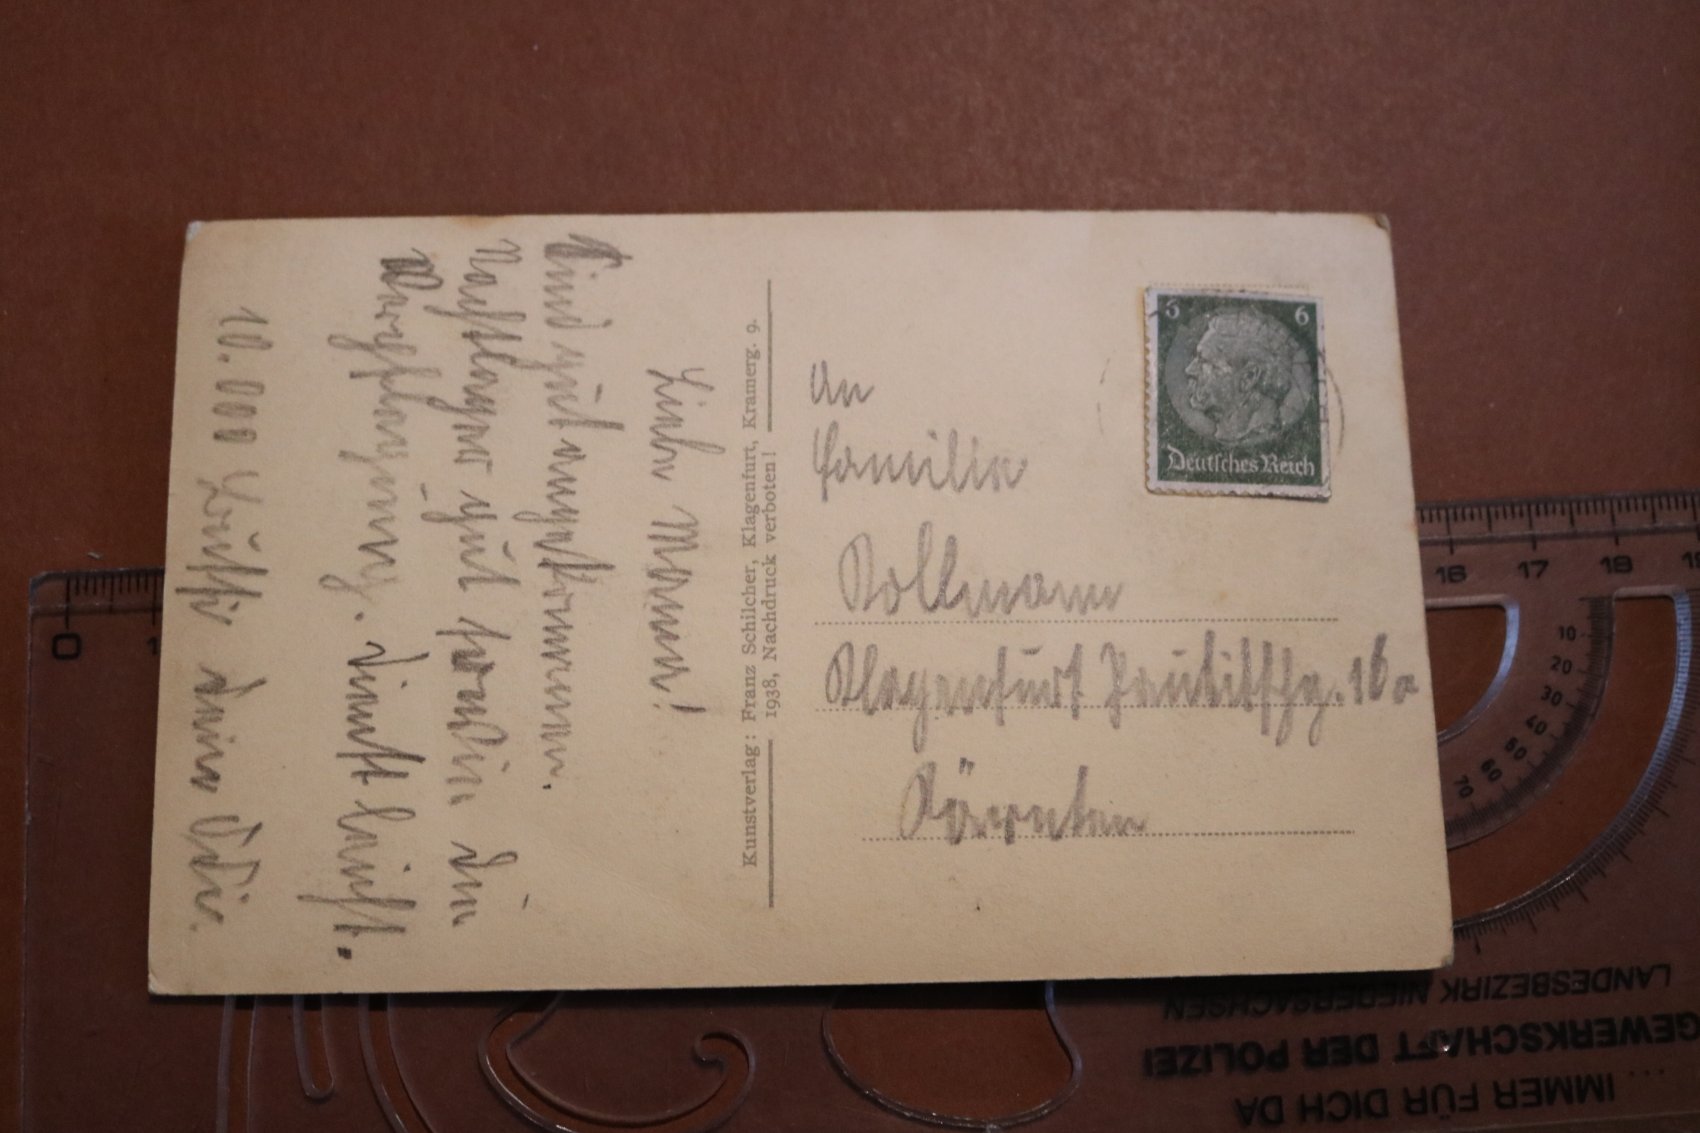 Liebe Mama!
Sind gut angekommen.
Nachtlager gut
Verpflegung.
10.000 Grüße deine
Kunstverlag: Franz Schilcher, Klagenfurt, Kramerg. 9.
1938, Nachdruck verboten!
6 6
Deutsches Reich
An
Familie
Kollmann
Klagenfurt 16a
Kärnten
0 1
16 17 18
10
20
30
40
50
60
70
LANDESBEZIRK NIEDERSACHSEN
GEWERKSCHAFT DER POLIZEI
... IMMER FÜR DICH DA